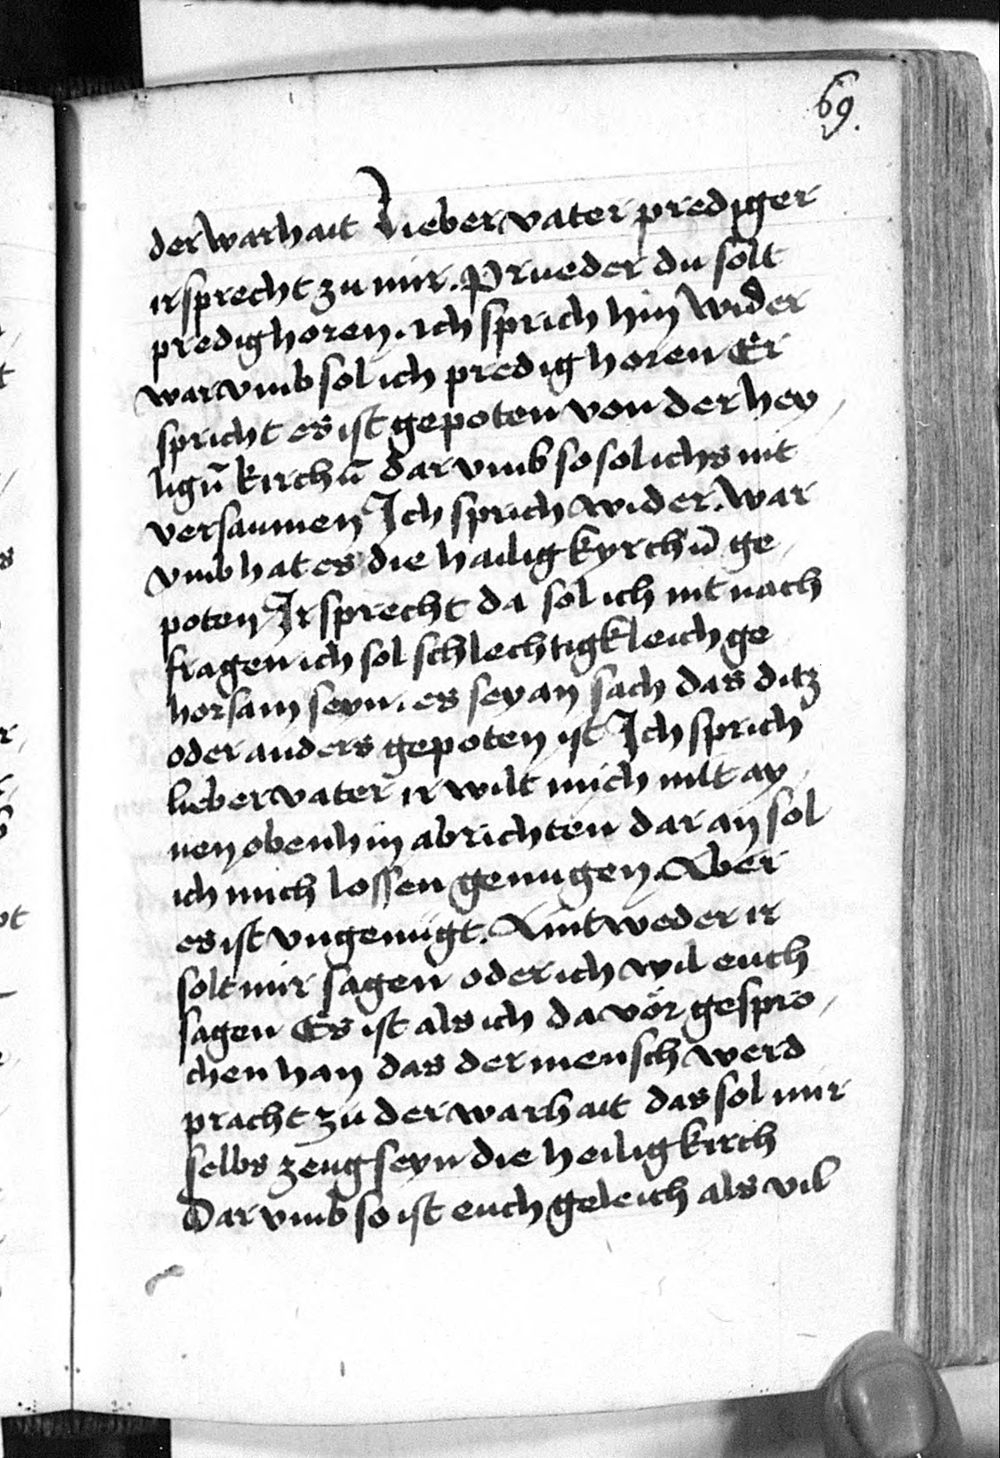 69.
der warhait Lieber vater prediger
ir sprecht zu mir. Prueder du solt
predig horen. ich sprich hin wider
war vmb sol ich predig horen Er
spricht es ist gepoten von der hey
ligñ kirchñ dar vmb so sol ichs nit
versaumen Ich sprich wider. war
vmb hat es die hailig kyrchñ ge
poten Ir sprecht da sol ich nit nach
fragen ich sol schlechtigkleich ge
horsam seyn. es sey an sach das ditz
oder anders gepoten ist Ich sprich
lieber vater ir wilt mich mit ay
nen obenhin abrichten dar an sol
ich mich lossen genugen. Aber
es ist vngenugt. Aintweder ir
solt mir sagen oder ich wil euch
sagen Es ist als ich da vor gespro
chen han das der mensch werd
pracht zu der warhait das sol mir
selbs zeug seyn die heilig kirch
Dar vmb so ist euch geleich als vil